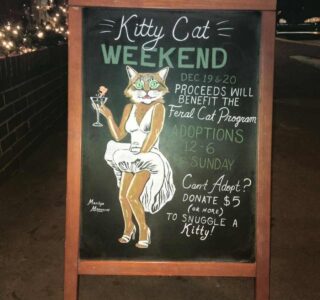 Kitty Cat
WEEKEND
DEC 19 & 20
PROCEEDS WILL
BENEFIT THE
Feral Cat Program
ADOPTIONS
12-6
SUNDAY
Can't Adopt?
DONATE $5
(OR MORE)
TO SNUGGLE A
Kitty!
Marilyn